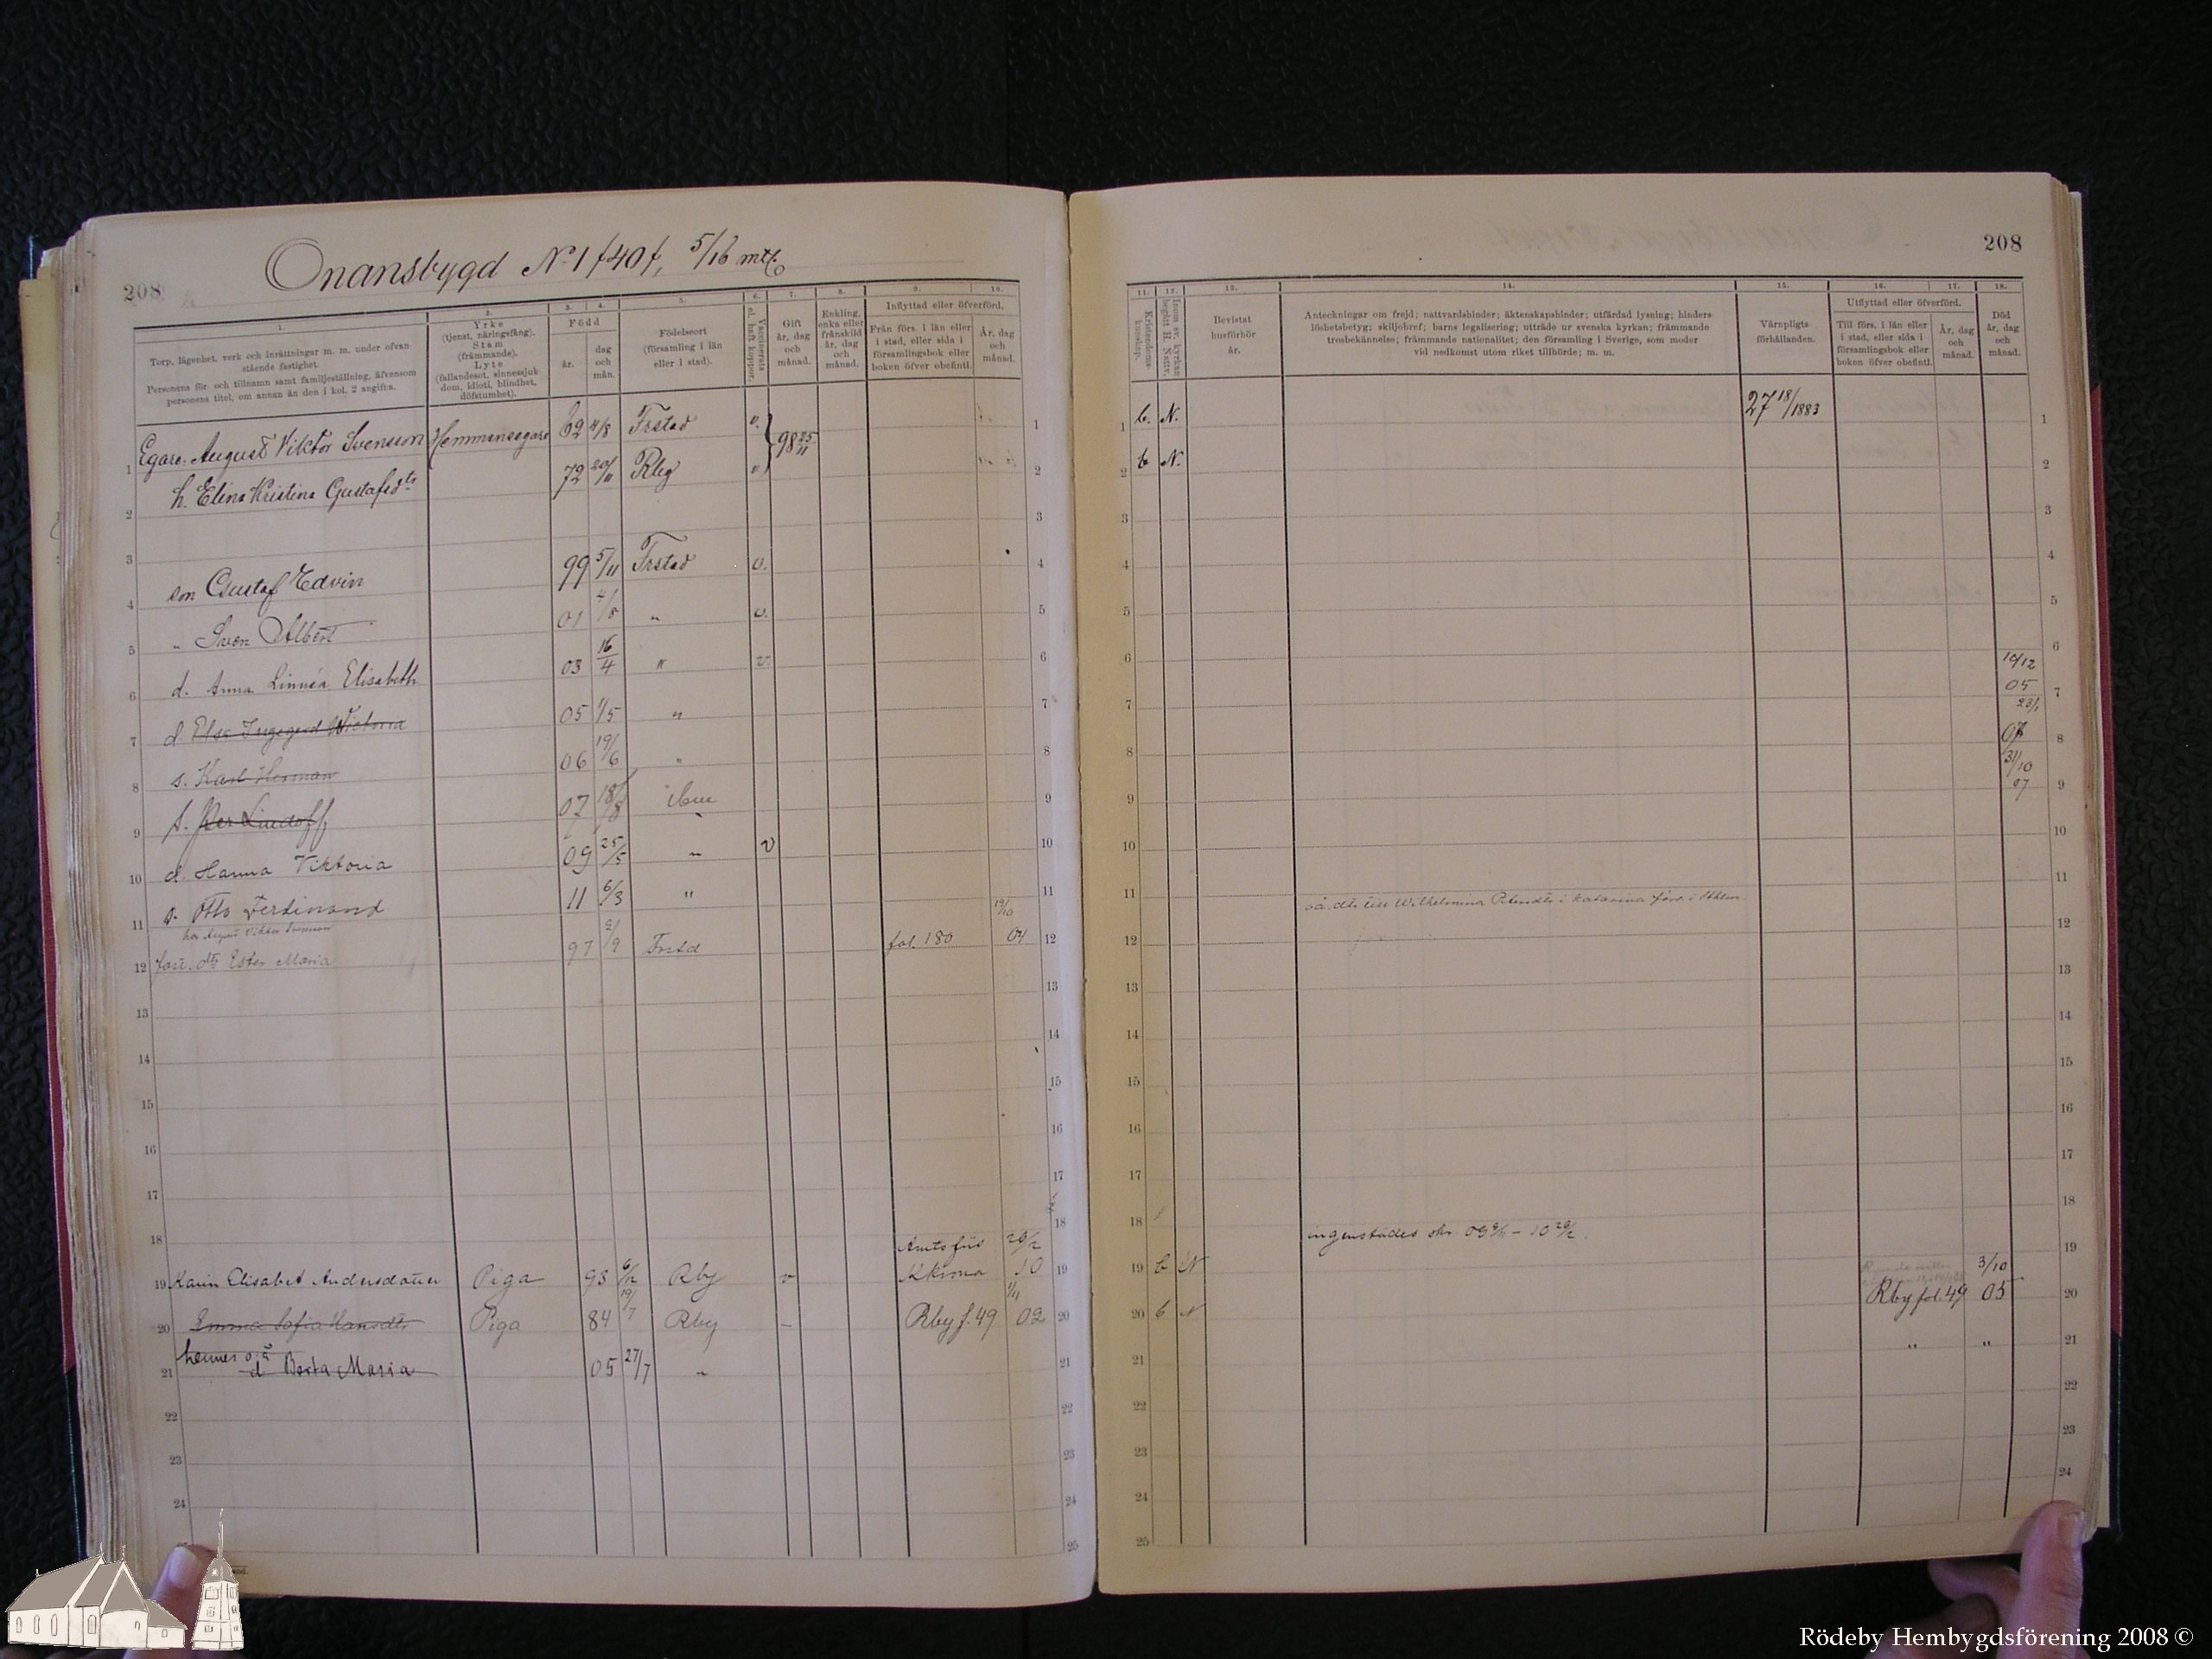 208
Onansbygd No 1 f40f, 5/16 mtl.
1.
Torp, lägenhet, verk och inrättningar m. m. under ofvan-
stående fastighet.
Personens för- och tillnamn samt familjeställning, äfvensom
personens titel, om annan än den i kol. 2 angifna.
2.
Yrke
(tjenst, näringsfång).
Stam
(främmande).
Lyte
(fallandesot, sinnessjuk-
dom, idioti, blindhet,
döfstumhet).
3. 4.
Född
år.
dag
och
mån.
5.
Födelseort
(församling i län
eller i stad).
6.
Vaccinerats
el. haft koppor.
7.
Gift
år, dag
och
månad.
8.
Enkling,
enka eller
frånskild
år, dag
och
månad.
9. 10.
Inflyttad eller öfverförd.
Från förs. i län eller
i stad, eller sida i
församlingsbok eller
boken öfver obefintl.
År, dag
och
månad.
1 Egare: August Viktor Svensson Hemmansegare 62 4/8 Frstad v. 98 25/11 1
2 h. Elina Kristina Gustafsdtr 72 20/11 Rby v 2
3 3
4 son Gustaf Edvin 99 5/11 Frstad v. 4
5 " Sven Albert 01 4/8 " v. 5
6 d. Anna Linnéa Elisabeth 03 16/4 " v. 6
7 d. Elsa Ingegerd Victoria 05 1/5 " 7
8 s. Karl Herman 06 19/6 " 8
9 s. Per Lindoff 07 18/8 ibm 9
10 d. Hanna Viktoria 09 25/5 " v 10
11 s. Otto Ferdinand 11 6/3 " 11
hos August Viktor Svensson
12 fost. dtr Ester Maria 97 2/9 Frstd fol. 180 19/10 04 12
13 13
14 14
15 15
16 16
17 17
18 18
19 Karin Elisabet Andersdotter Piga 93 6/12 Rby v Amtsfüs Kkrona 26/2 10 19
20 Emma Sofia Hansdtr Piga 84 19/7 Rby – Rby f. 49 1/11 02 20
21 hennes o.ä. d Berta Maria 05 27/7 " 21
22 22
23 23
24 24
25
208
11.
Kristendoms-
kunskap.
12.
Inom sv. kyrkan
begått H. Nattv.
13.
Bevistat
husförhör
år.
14.
Anteckningar om frejd; nattvardshinder; äktenskapshinder; utfärdad lysning; hinders-
löshetsbetyg; skiljobref; barns legalisering; utträde ur svenska kyrkan; främmande
trosbekännelse; främmande nationalitet; den församling i Sverige, som moder
vid nedkomst utom riket tillhörde; m. m.
15.
Värnpligts-
förhållanden.
16. 17.
Utflyttad eller öfverförd.
Till förs. i län eller
i stad, eller sida i
församlingsbok eller
boken öfver obefintl.
År, dag
och
månad.
18.
Död
år, dag
och
månad.
1 b. N. 27 18/1883 1
2 b N. 2
3 3
4 4
5 5
6 6
7 10/12 05 7
8 23/1 07 8
9 31/10 07 9
10 10
11 11
12 oä. dtr till Wilhelmina Petersdtr i Katarina förs. i Sthlm 12
13 13
14 14
15 15
16 16
17 17
18 18
19 b N ingenstädes skr. 09 9/11 – 10 26/2. 19
20 b N Rby fol. 49 3/10 05 20
21 " " 21
22 22
23 23
24 24
25
Rödeby Hembygdsförening 2008 ©